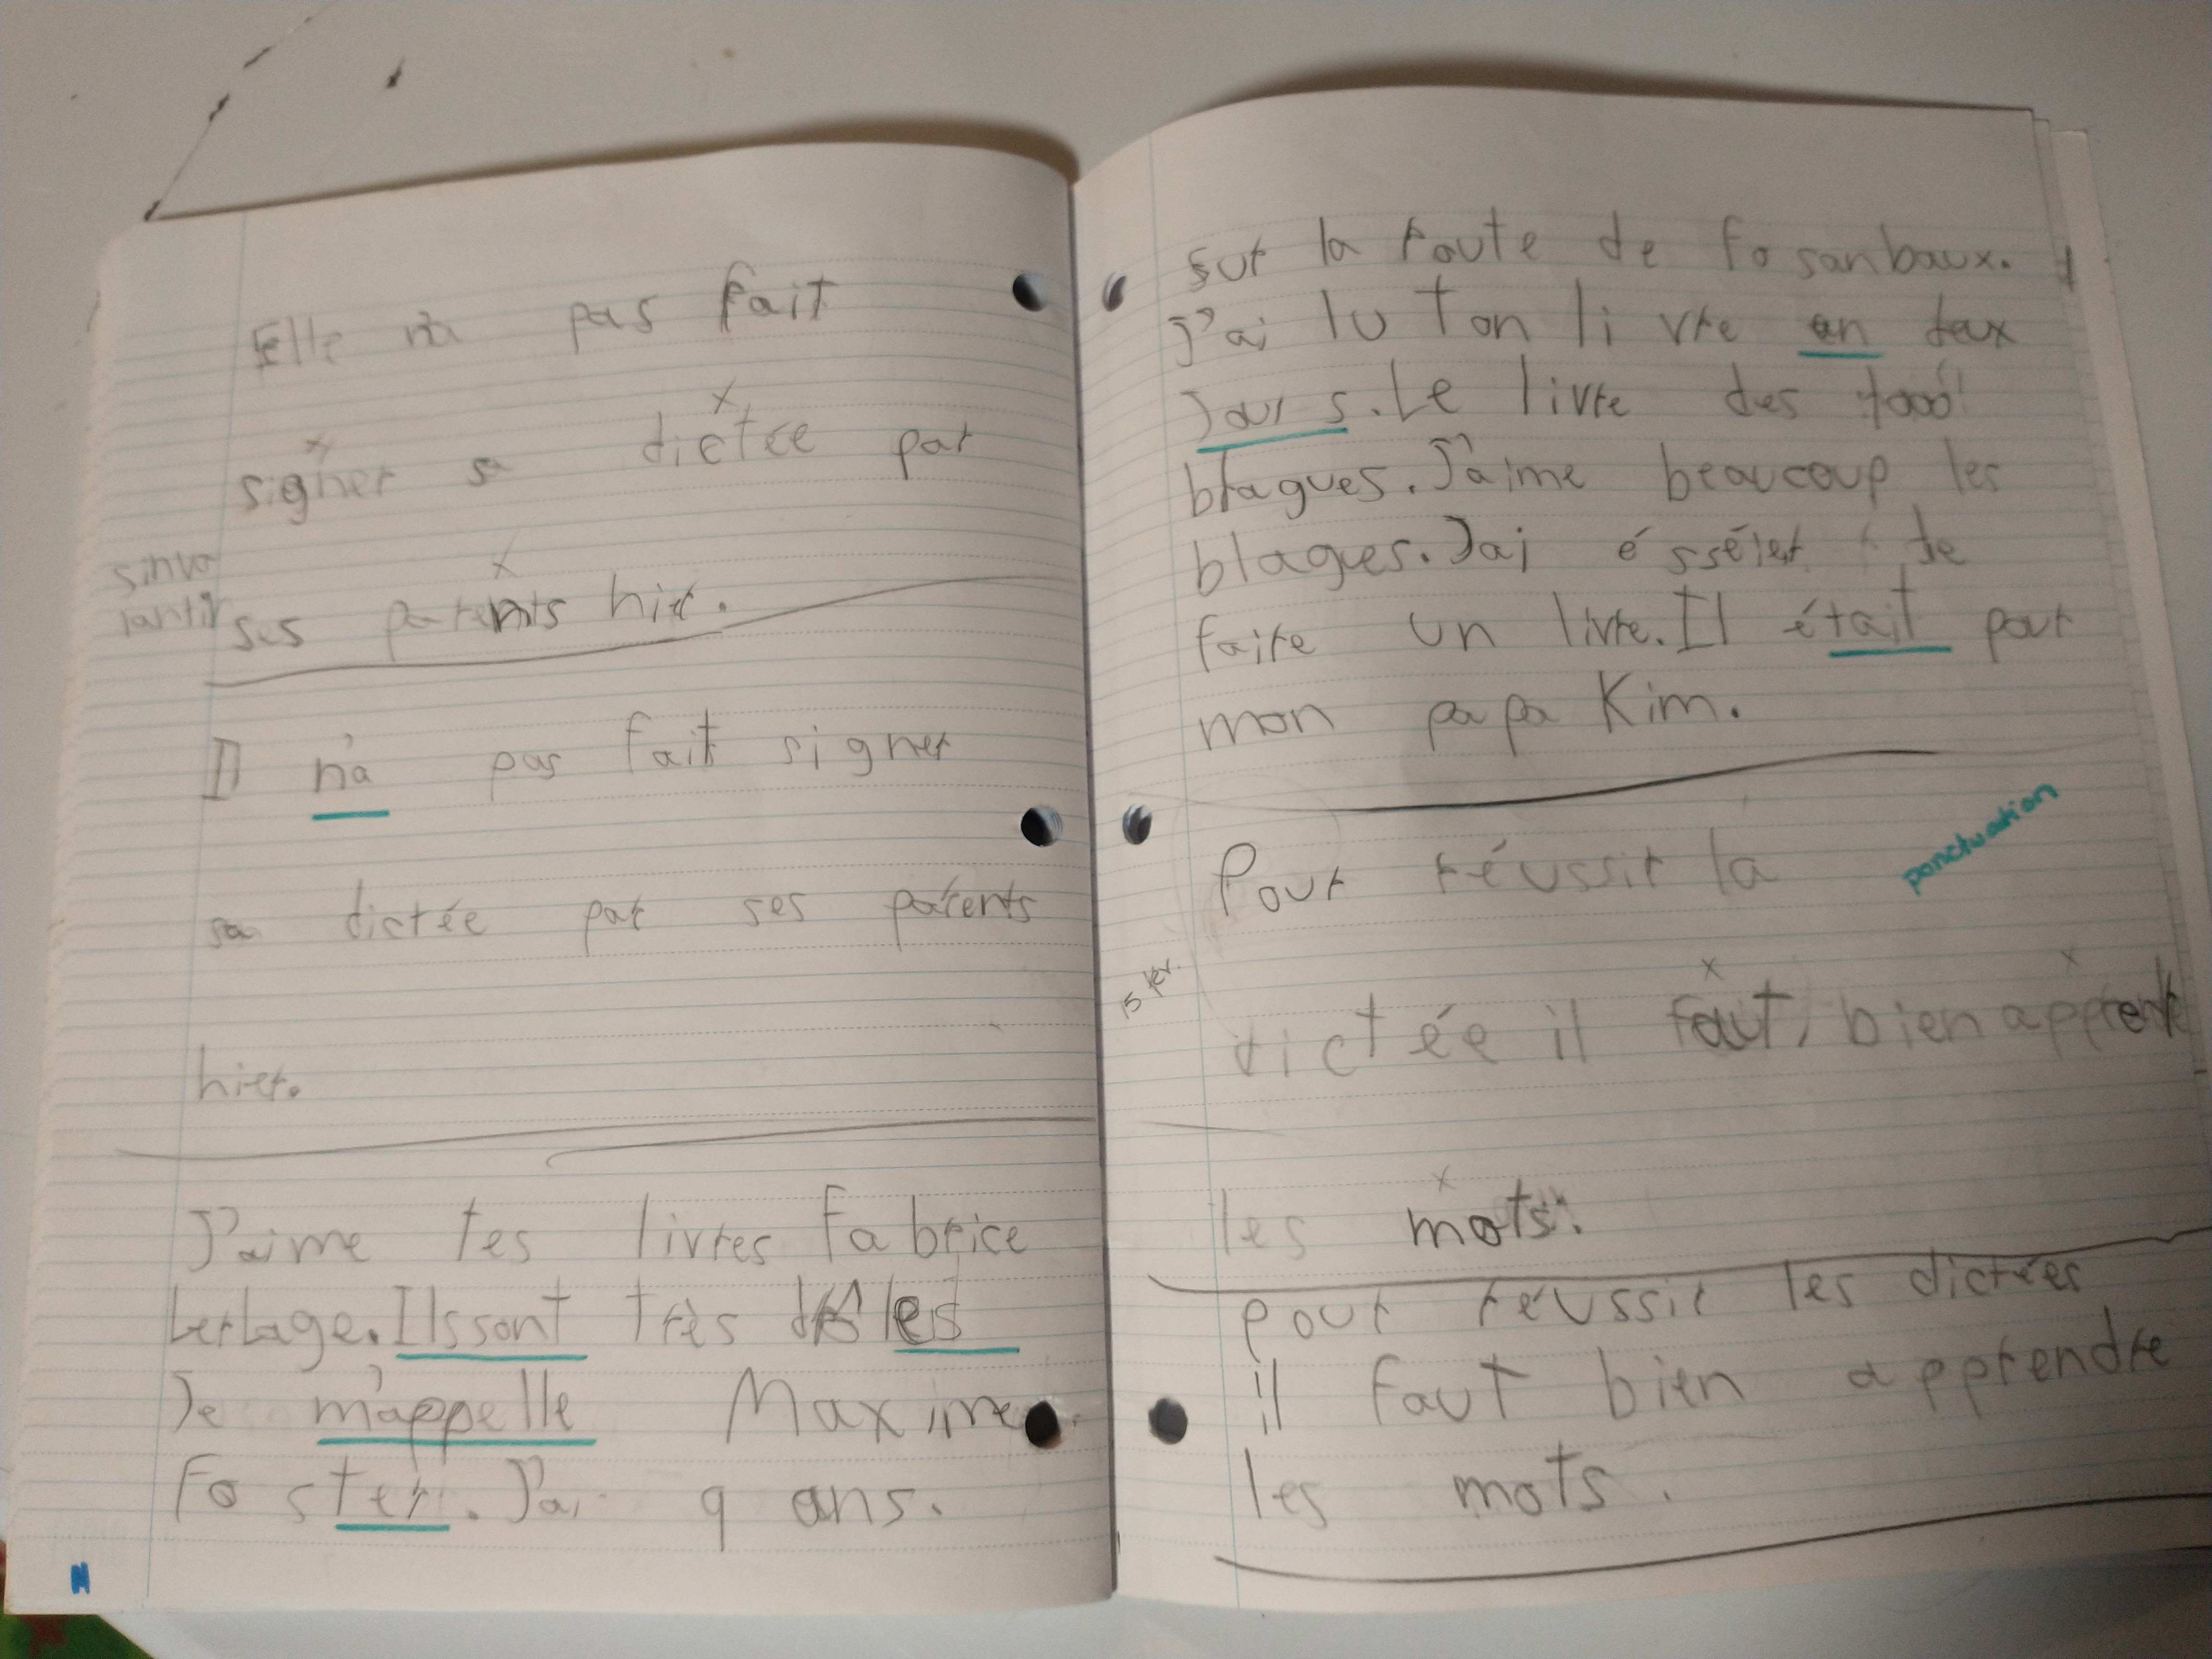 Elle n'a pas fait
signer sa dictée par
ses parents hier.
Il n'a pas fait signer
sa dictée par ses parents
hier.
J'aime tes livres Fabrice
Ils sont très
Je m'appelle Maxime
Foster. J'ai 9 ans.
sur la route de fosanbaux.
J'ai lu ton livre en deux
jours. Le livre des 1000
blagues. J'aime beaucoup les
blagues. J'ai ésséier de
faire un livre. Il était pour
mon papa Kim.
Pour réussir la
ponctuation
15 fév.
dictée il faut, bien
les mots.
pour réussir les dictées
il faut bien apprendre
les mots.